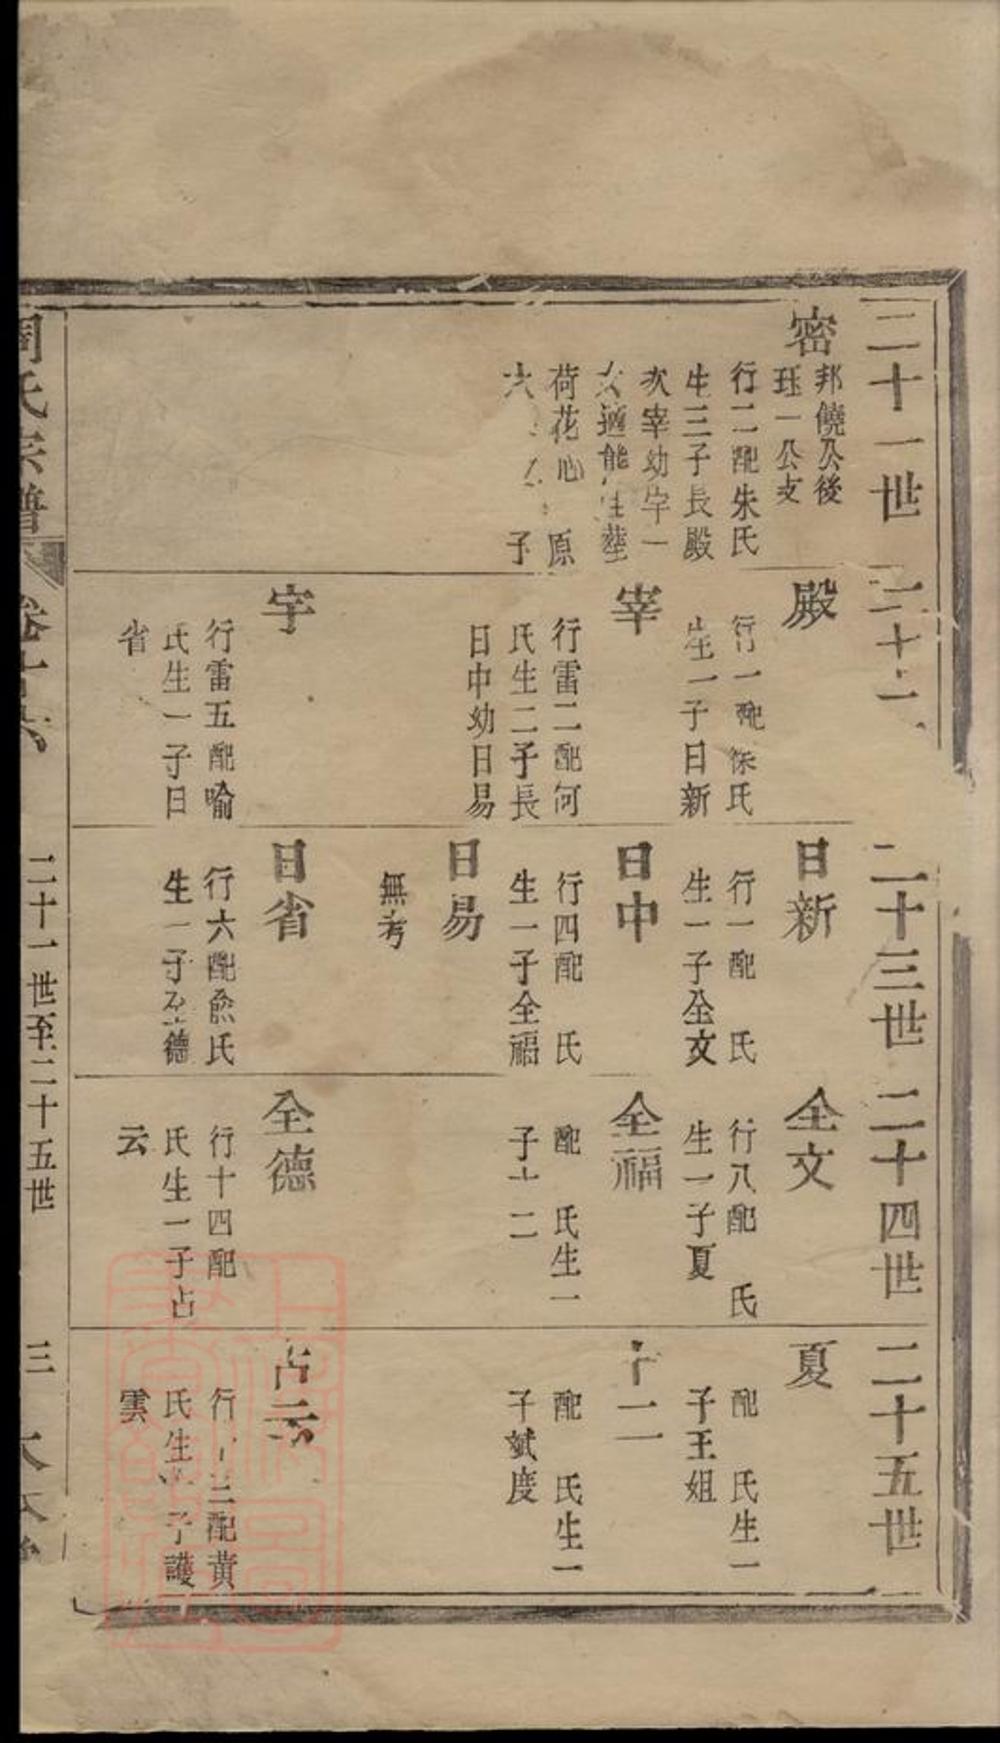 二十一世
密
邦饒公後
珏一公支
行二配朱氏
生三子長殿
次宰幼宇一
女適熊
荷花心 原
六 子
二十二
殿
行一配徐氏
生一子日新
宰
行雷二配何
氏生二子長
日中幼日易
宇
行雷五配喻
氏生一子日
省
二十三世
日新
行一配 氏
生一子全文
日中
行四配 氏
生一子全福
日易
無考
日省
行六配熊氏
生一子全德
二十四世
全文
行八配 氏
生一子夏
全福
配 氏生一
子十二
全德
行十四配
氏生一子占
云
二十五世
夏
配 氏生一
子王姐
十二
配 氏生一
子斌度
占云
行十三配黃
氏生 子護
雲
周氏宗譜
卷十六
二十一世至二十五世
三